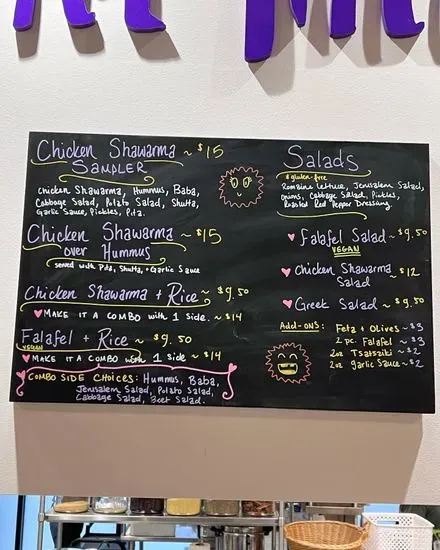 Chicken Shawarma ~ $15
SAMPLER
Chicken Shawarma, Hummus, Baba,
Cabbage Salad, Potato Salad, Shutta,
Garlic Sauce, Pickles, Pita.
Chicken Shawarma ~ $15
over Hummus
served with Pita, Shutta, + Garlic Sauce
Chicken Shawarma + Rice ~ $9.50
MAKE IT A COMBO with 1 side. ~ $14
Falafel + Rice ~ $9.50
VEGAN
MAKE IT A COMBO with 1 side ~ $14
COMBO SIDE CHOICES: Hummus, Baba,
Jerusalem Salad, Potato Salad,
Cabbage Salad, Beet Salad.
Salads
gluten-free
Romaine lettuce, Jerusalem Salad,
Onions, Cabbage Salad, Pickles,
Roasted Red Pepper Dressing
Falafel Salad ~ $9.50
VEGAN
Chicken Shawarma ~ $12
Salad
Greek Salad ~ $9.50
Add-ons: Feta + Olives ~ $3
2 pc. Falafel ~ $3
2oz Tzatziki ~ $2
2oz Garlic Sauce ~ $2